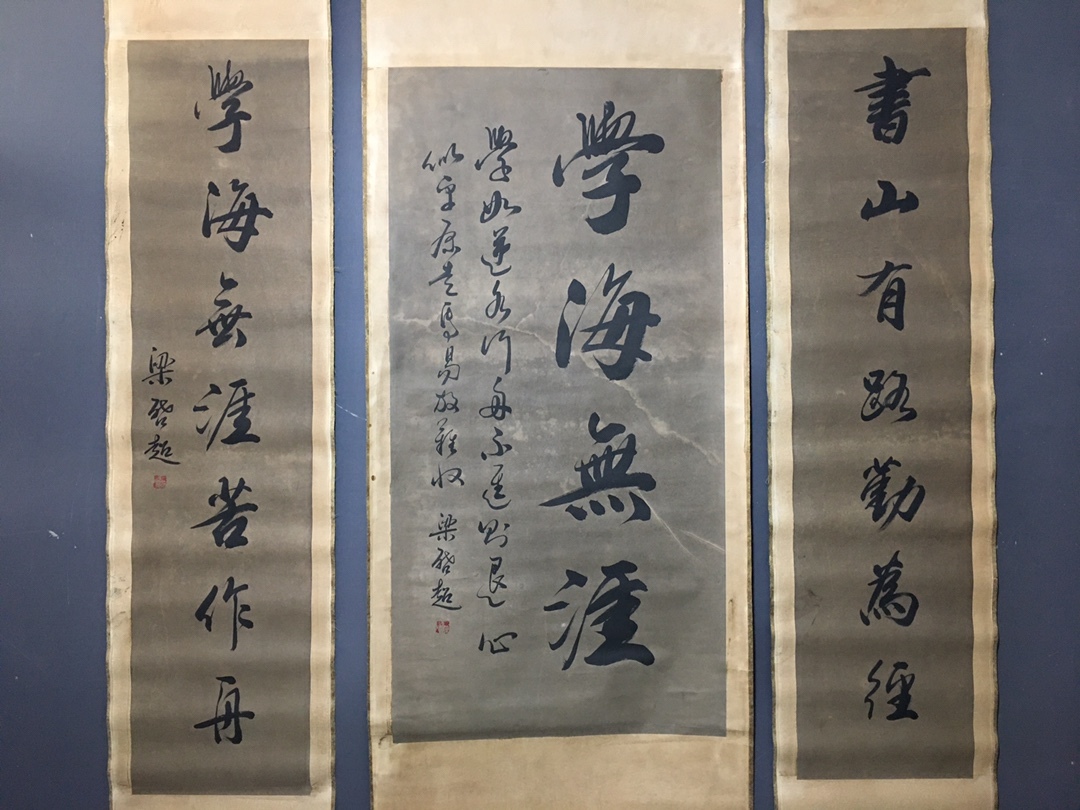 書山有路勤為徑
學海無涯
學如逆水行舟不進則退心
似平原走馬易放難收 梁啓超
學海無涯苦作舟
梁啓超